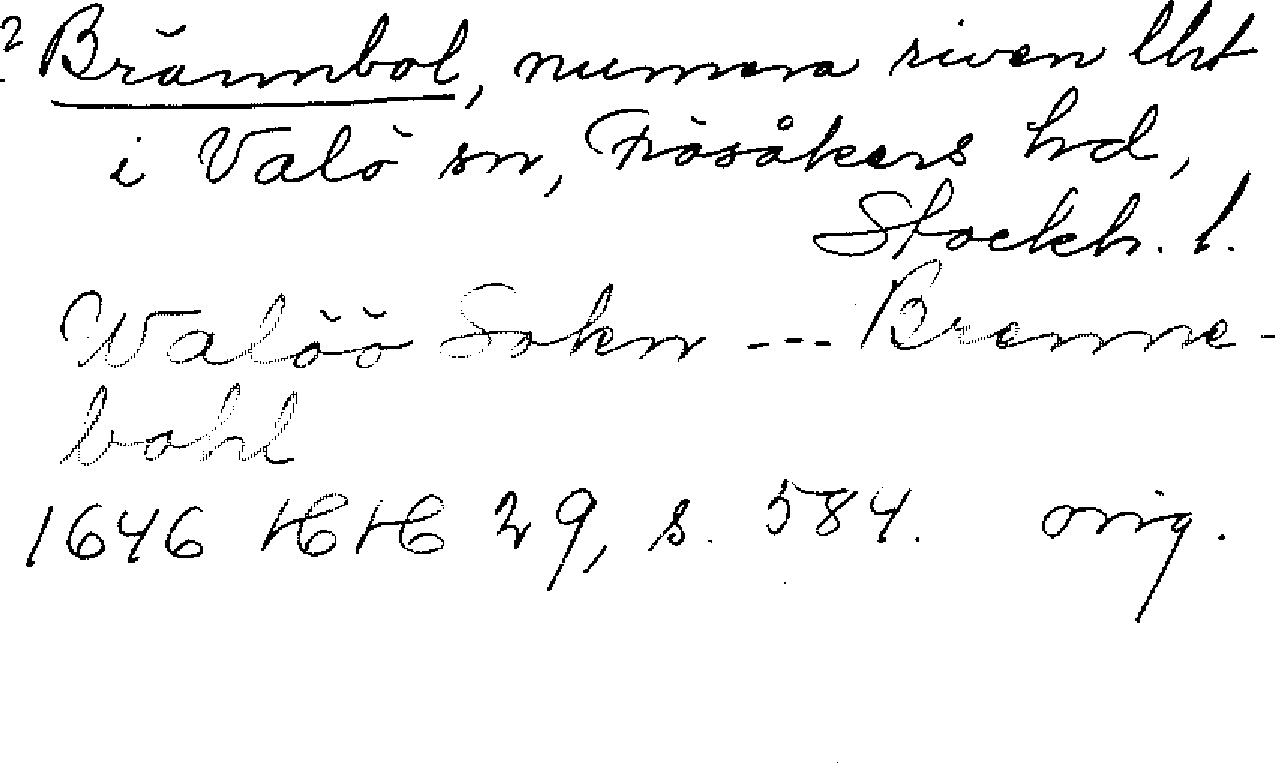 ? Brännbol, numera riven lht
i Valö sn, Frösåkers hd,
Stockh. l.
Walöö Sokn --- Brenne-
bohl
1646 HH 29, s. 584. orig.